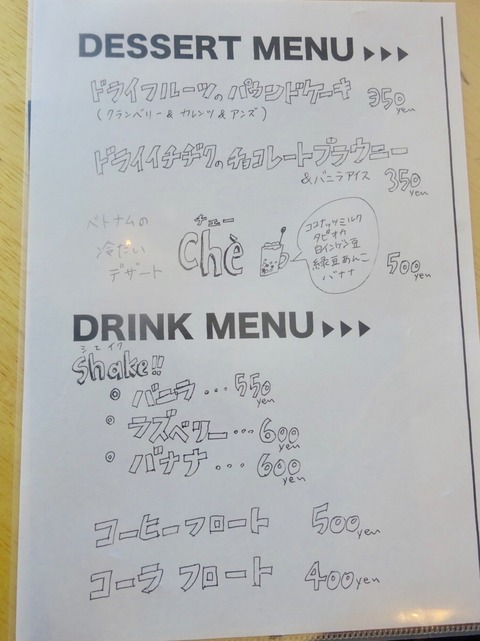 DESSERT MENU ▸▸▸
ドライフルーツのパウンドケーキ 350yen
(クランベリー&カレンツ&アンズ)
ドライイチヂクのチョコレートブラウニー
&バニラアイス 350yen
ベトナムの
冷たい
デザート
チェー
Chè
ココナッツミルク
タピオカ
白インゲン豆
緑豆あんこ
バナナ
500yen
DRINK MENU ▸▸▸
シェイク
Shake!!
◎ バニラ…550yen
◎ ラズベリー…600yen
◎ バナナ…600yen
コーヒーフロート 500yen
コーラ フロート 400yen